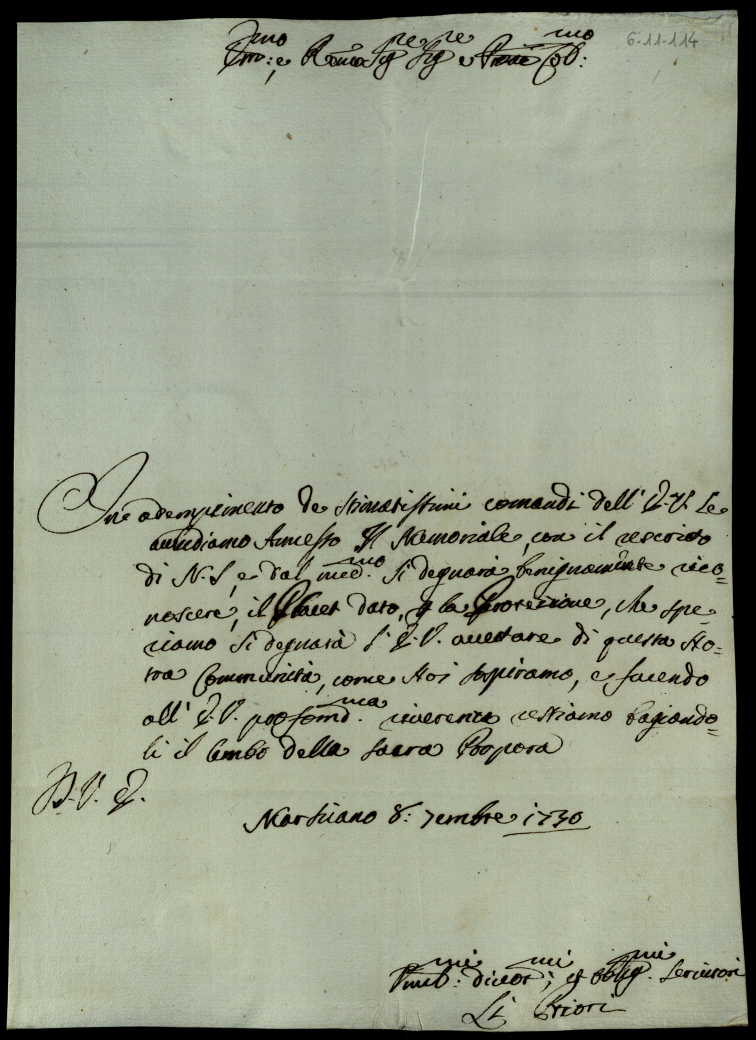 6-11-114
Em:mo e Rmo Sigre Sigre e Prone Col:mo
In adempimento de stimatissimi comandi dell' E. V. Le
accludiamo Annesso Il Memoriale, con il rescritto
di N. S, e dal med.mo Si degnarà benignamente rico=
noscere, il Placet dato, p la Protezione, che spe=
riamo Si degnarà l' E. V. accettare di questa No=
stra Communità, come Noi sospiramo, e facendo
all' E. V. profond.ma riverenza restiamo bagiando=
li il lembo della sacra Porpora
D. V. E.
Marsciano 8: 7embre 1730
Vmil:mi divot:mi, et obblig.mi Servitori
Li Priori